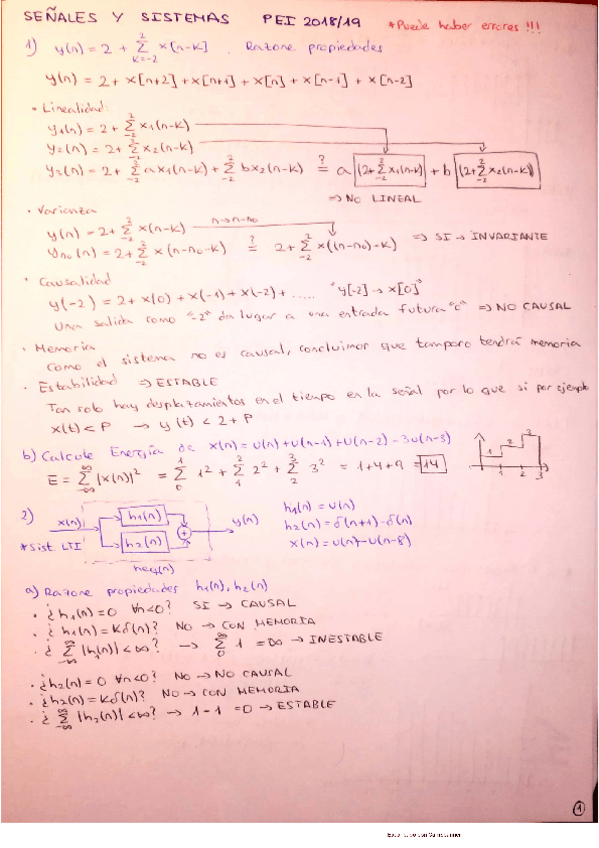 SEÑALES Y SISTEMAS PEI 2018/19 *Puede haber errores !!!
1) y(n) = 2 + Σ_{k=-2}^{2} x[n-k] . Razone propiedades
y(n) = 2 + x[n+2] + x[n+1] + x[n] + x[n-1] + x[n-2]
· Linealidad:
y1(n) = 2 + Σ_{-2}^{2} x1(n-k)
y2(n) = 2 + Σ_{-2}^{2} x2(n-k)
y3(n) = 2 + Σ_{-2}^{2} a x1(n-k) + Σ_{-2}^{2} b x2(n-k) =? a (2+Σ_{-2}^{2} x1(n-k)) + b (2+Σ_{-2}^{2} x2(n-k))
⇒ NO LINEAL
· Varianza
y(n) = 2 + Σ_{-2}^{2} x(n-k) n→n-n0
yn0(n) = 2 + Σ_{-2}^{2} x(n-n0-k) =? 2 + Σ_{-2}^{2} x((n-n0)-k) ⇒ SI → INVARIANTE
· Causalidad
y(-2) = 2 + x(0) + x(-1) + x(-2) + ..... "y[-2] → x[0]"
Una salida como "-2" da lugar a una entrada futura "0" ⇒ NO CAUSAL
· Memoria
Como el sistema no es causal, concluimos que tampoco tendrá memoria
· Estabilidad ⇒ ESTABLE
Tan solo hay desplazamientos en el tiempo en la señal por lo que si por ejemplo
x(t) < P → y(t) < 2+P
b) Calcule Energía de x(n) = u(n) + u(n-1) + u(n-2) - 3u(n-3)
E = Σ_{-∞}^{∞} |x(n)|² = Σ_{0}^{1} 1² + Σ_{1}^{2} 2² + Σ_{2}^{3} 3² = 1+4+9 = 14
1 2 3
1 2 3
2) x(n) h1(n) h2(n) + y(n) heq(n)
*Sist. LTI
h1(n) = u(n)
h2(n) = δ(n+1) - δ(n)
x(n) = u(n) - u(n-8)
a) Razone propiedades h1(n), h2(n)
· ¿h1(n) = 0 ∀n<0? SI → CAUSAL
· ¿h1(n) = Kδ(n)? NO → CON MEMORIA
· ¿Σ_{-∞}^{∞} |h1(n)| < ∞? → Σ_{0}^{∞} 1 = ∞ → INESTABLE
· ¿h2(n) = 0 ∀n<0? NO → NO CAUSAL
· ¿h2(n) = Kδ(n)? NO → CON MEMORIA
· ¿Σ_{-∞}^{∞} |h2(n)| < ∞? → 1 - 1 = 0 → ESTABLE
1